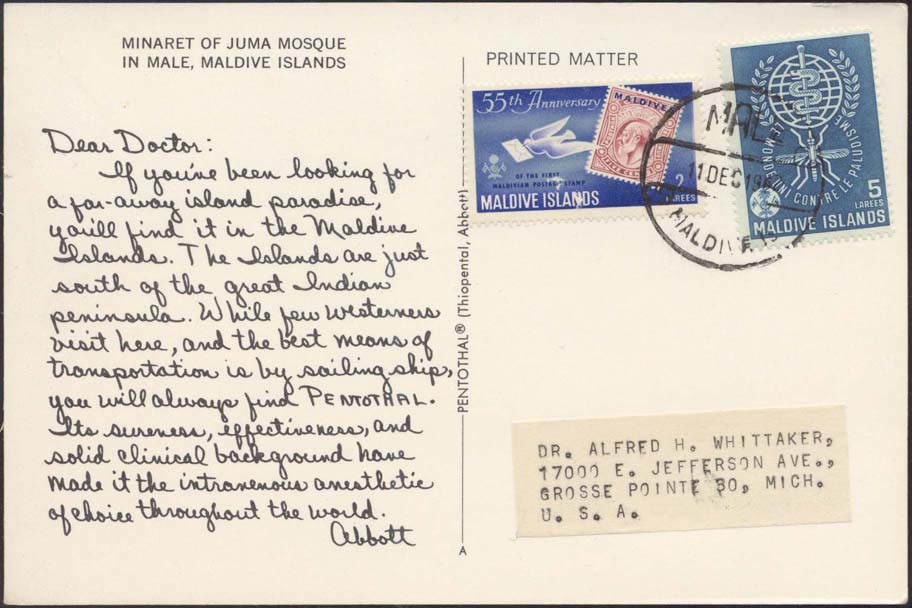 MINARET OF JUMA MOSQUE
IN MALE, MALDIVE ISLANDS
Dear Doctor:
If you've been looking for
a far-away island paradise,
you'll find it in the Maldive
Islands. The Islands are just
south of the great Indian
peninsula. While few westerners
visit here, and the best means of
transportation is by sailing ship,
you will always find PENTOTHAL.
Its sureness, effectiveness, and
solid clinical background have
made it the intravenous anesthetic
of choice throughout the world.
Abbott
PENTOTHAL® (Thiopental, Abbott)
A
PRINTED MATTER
55th Anniversary
OF THE FIRST
MALDIVIAN POSTAGE STAMP
MALDIVE ISLANDS
2
LAREES
MALDIVE
11 DEC 196
MALDIVE
CONTRE LE PALUDISME
5
LAREES
MALDIVE ISLANDS
DR. ALFRED H. WHITTAKER,
17000 E. JEFFERSON AVE.,
GROSSE POINTE 30, MICH.
U. S. A.